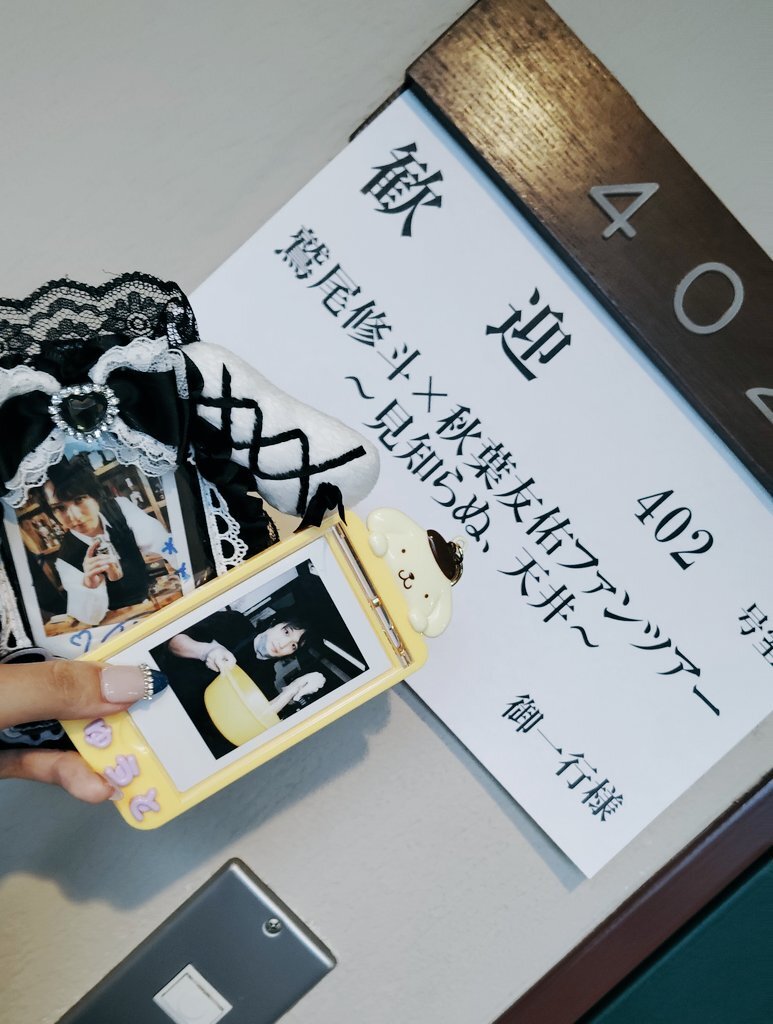 402
歓迎
鷲尾修斗×秋葉友佑ファンツアー
～見知らぬ、天井～
402号室
御一行様